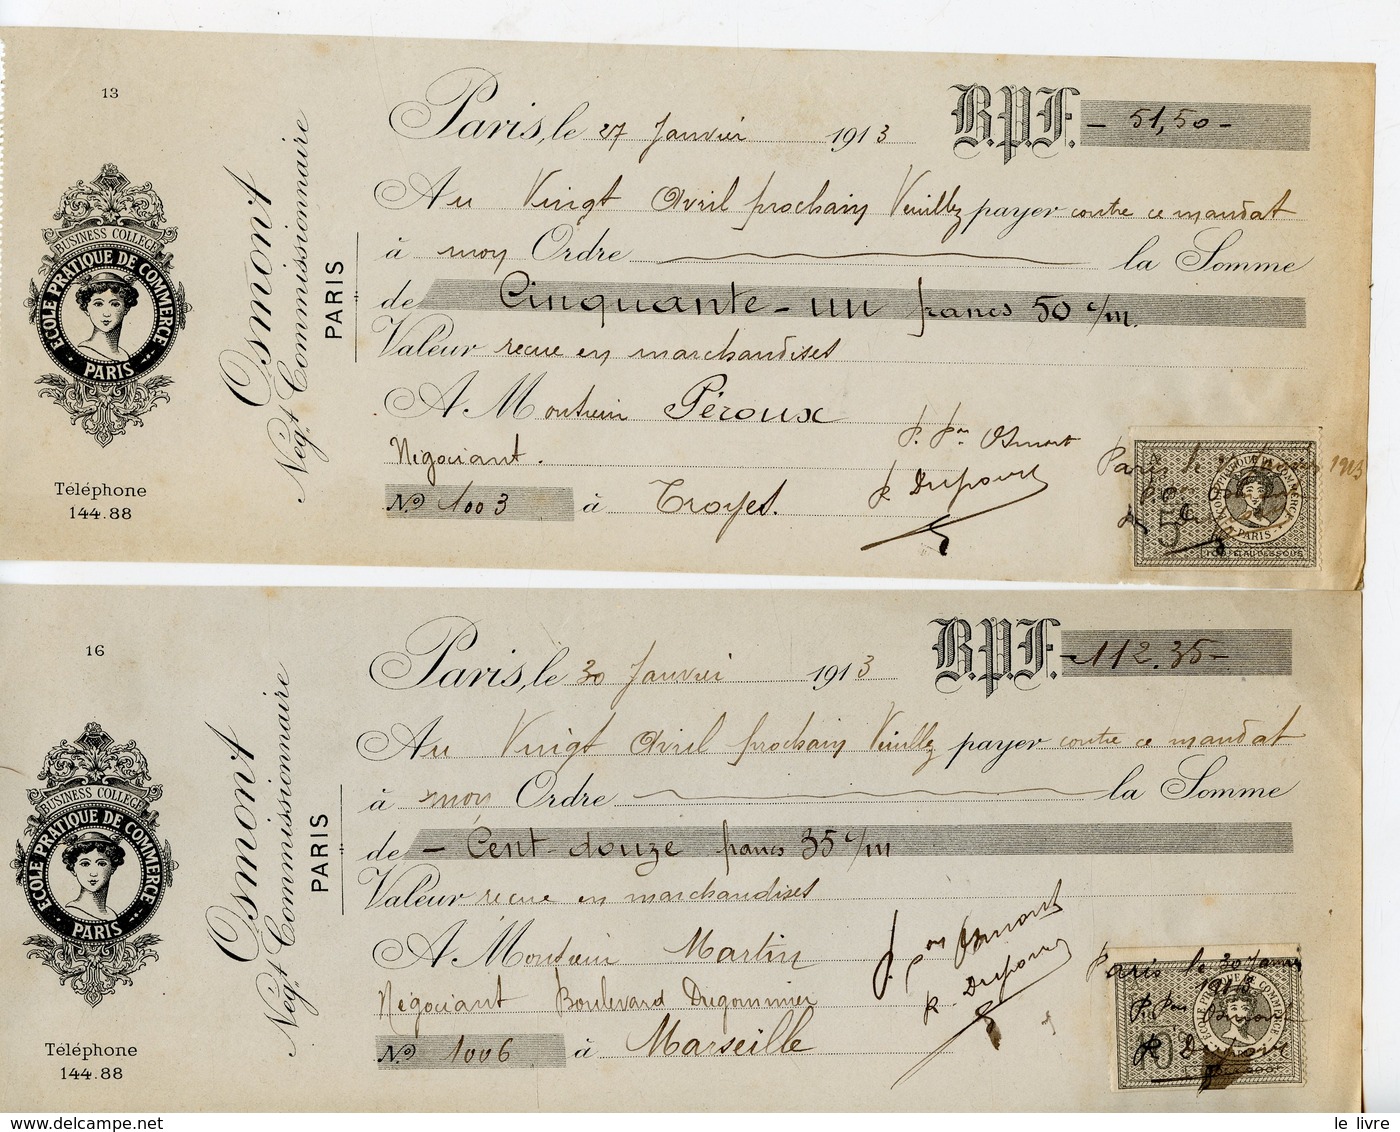 13
BUSINESS COLLEGE
ECOLE PRATIQUE DE COMMERCE
PARIS
Téléphone
144.88
Osmont
Négt Commissionnaire
PARIS
Paris, le 27 Janvier 1913 B.P.F. - 51,50 -
Au Vingt Avril prochain Veuillez payer contre ce mandat
à moy Ordre la Somme
de Cinquante-un francs 50 c/m.
Valeur recue en marchandises
A Monsieur Péroux
Négociant.
No 1003 à Troyes.
P. Pon Osmont
R Dufour
Paris le 1913
5
ECOLE PRATIQUE DE COMMERCE
PARIS
16
BUSINESS COLLEGE
ECOLE PRATIQUE DE COMMERCE
PARIS
Téléphone
144.88
Osmont
Négt Commissionnaire
PARIS
Paris, le 30 Janvier 1913 B.P.F. - 112.35 -
Au Vingt Avril prochain Veuillez payer contre ce mandat
à moy Ordre la Somme
de - Cent-douze francs 35 c/m
Valeur recue en marchandises
A Monsieur Martin
Négociant Boulevard Dugommier
No 1006 à Marseille
P. Pon Osmont
R. Dufour
Paris le 30 Janv
1913
P. Pon Osmont
R Dufour
le livre